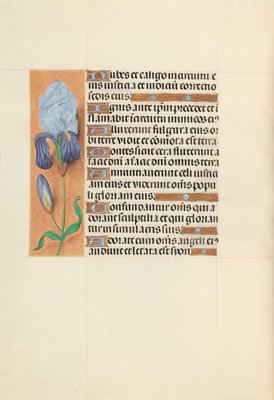 Nubes et caligo in circuitu e
ius iusticia et iudiciū correctio
sedis eius.
Ignis ante ip̄m precedet et ī
flāmabit in circuitu inimicos ei⁹
Alluxerunt fulgura eius or
bi terre vidit et cōmota est terra.
Montes sicut cera fluxerunt a
facie dn̄i a facie dn̄i omnis terra.
Annunciauerunt celi iusticiā
am eius et viderunt om̄s popu
li gloriam eius.
Confundantur om̄s qui a
dorant sculptilia et qui glorian
tur in simulacris suis.
Adorate eum om̄s angeli ei⁹
audiuit et letata est syon.